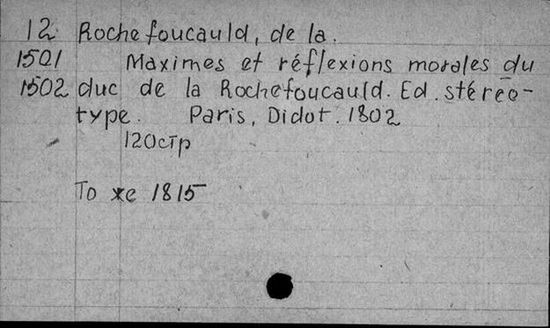 12 Rochefoucauld, de la.
1501 Maximes et réflexions morales du
1502 duc de la Rochefoucauld. Ed. stéréo-
type. Paris, Didot. 1802
120стр
То же 1815